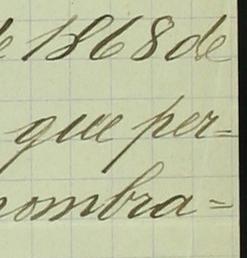 e 1868 de
que per=
nombra=